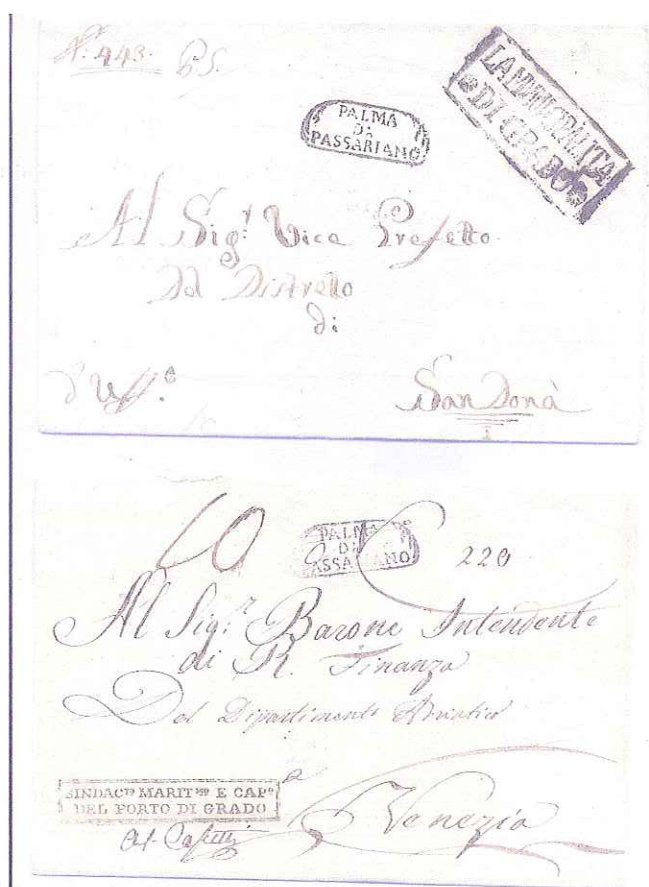 N.º 443. P.S.
PALMA
DI
PASSARIANO
LA MUNICIPALITA
DI GRADO
Al Sigr. Vice Prefetto
Del Distretto
di
d'Uff.º
San Donà
10
PALMA
DI
PASSARIANO
220
Al Sig.r Barone Intendente
di R. Finanza
Del Dipartimento Adriatico
a
SINDACTO MARITMO E CAPO
DEL PORTO DI GRADO
Venezia